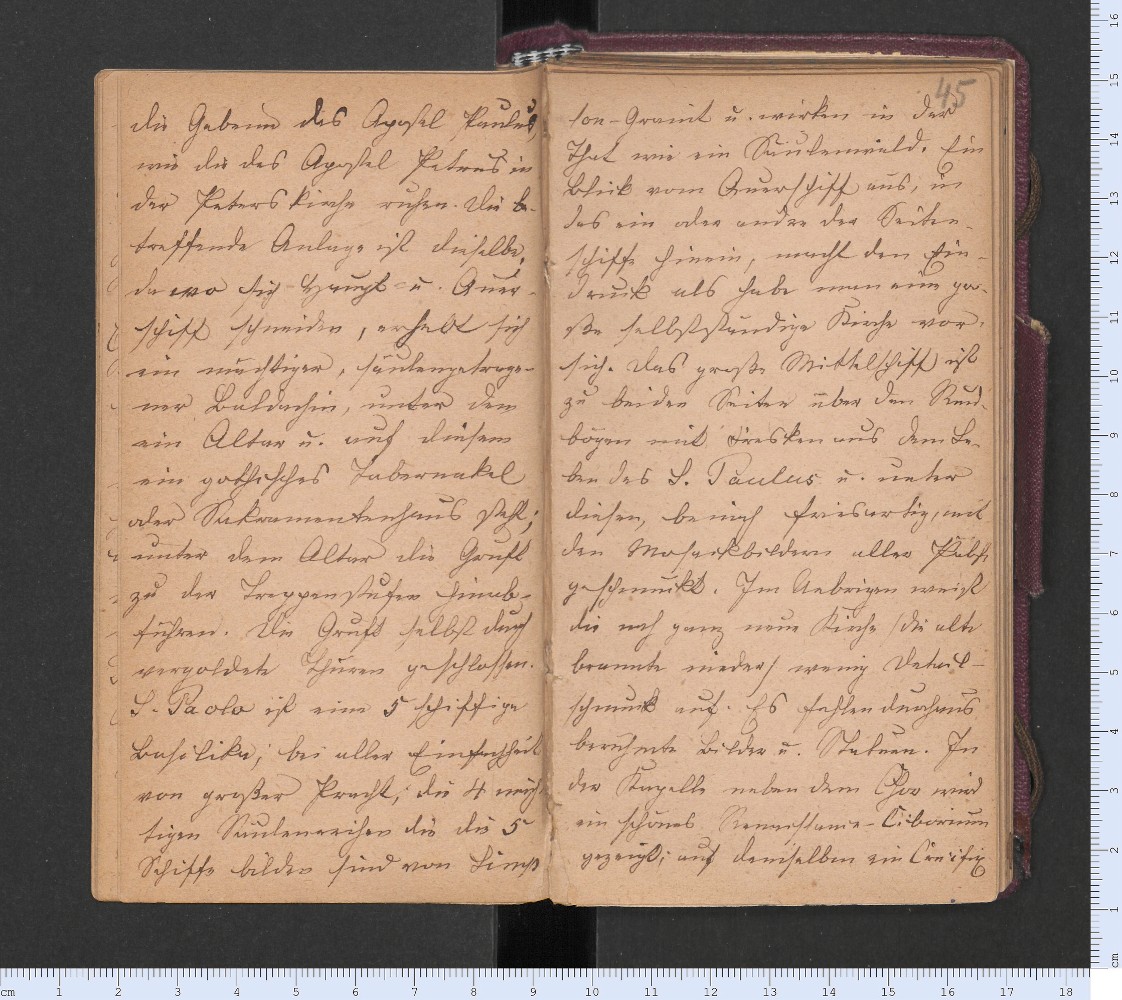 die Gebeine des Apostel Paulus,
wie die des Apostel Petrus in
der Peterskirche ruhen. Die be-
treffende Anlage ist dieselbe,
da wo sich Haupt- u. Quer-
schiff schneiden, erhebt sich
ein mächtiger, säulengetrage-
ner Baldachin, unter dem
ein Altar u. auf diesem
ein gothisches Tabernakel
oder Sakramentenhaus steht;
unter dem Altar die Gruft
zu der Treppenstufen hinab-
führen. Die Gruft selbst durch
vergoldete Thüren geschlossen.
S. Paolo ist eine 5 schiffige
Basilika; bei aller Einfachheit
von großer Pracht; die 4 mäch-
tigen Säulenreihen die die 5
Schiffe bilden sind von Simp-
45
lon-Granit u. wirken in der
That wie ein Säulenwald. Ein
Blick vom Querschiff aus, in
das ein oder andre der Seiten-
schiffe hinein, macht den Ein-
druck als habe man eine gro-
ße selbstständige Kirche vor
sich. Das große Mittelschiff ist
zu beiden Seiten über den Rund-
bögen mit Fresken aus dem Le-
ben des S. Paulus u. unter
diesen, beinah friesartig, mit
den Mosaikbildern aller Päbste
geschmückt. Im Uebrigen weist
die noch ganz neue Kirche (die alte
brannte nieder) wenig Detail-
schmuck auf. Es fehlen durchaus
berühmte Bilder u. Statuen. In
der Kapelle neben dem Chor wird
ein schönes Renaissance-Ciborium
gezeigt; auf demselben ein Crucifix